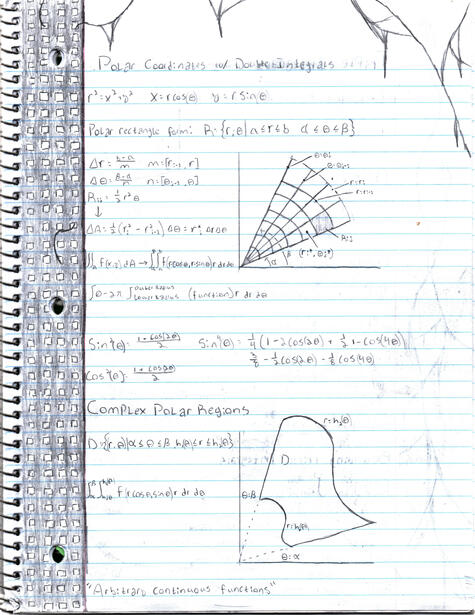 Polar Coordinates w/ Double Integrals
r² = x² + y²   x = r cos(θ)   y = r sin θ
Polar rectangle form: R = {r, θ | a ≤ r ≤ b   α ≤ θ ≤ β}
Δr = (b-a)/m   m = [r_{i-1}, r]
Δθ = (β-α)/n   n = [θ_{j-1}, θ]
½ r² θ
↓
ΔA = ½(r_i² - r_{i-1}²) Δθ = r* Δr Δθ
∬ f(x,y) dA → ∬ f(r cos θ, r sin θ) r dr dθ
α
β
(r_i*, θ_j*)
R_{ij}
(function) r dr dθ
Sin²(θ) = (1 + cos(2θ))/2   Sin⁴(θ) = ¼(1 - 2cos(2θ) + ½ 1 - cos(4θ)
3/8 - ½ cos(2θ) - ⅛ cos(4θ)
Cos²(θ) = (1 + cos 2θ)/2
Complex Polar Regions
D = {(r, θ) | α ≤ θ ≤ β   h₁(θ) ≤ r ≤ h₂(θ)}
f(r cos θ, sin θ) r dr dθ
r = h₂(θ)
D
θ = β
r = h₁(θ)
θ = α
"Arbitrary continuous functions"